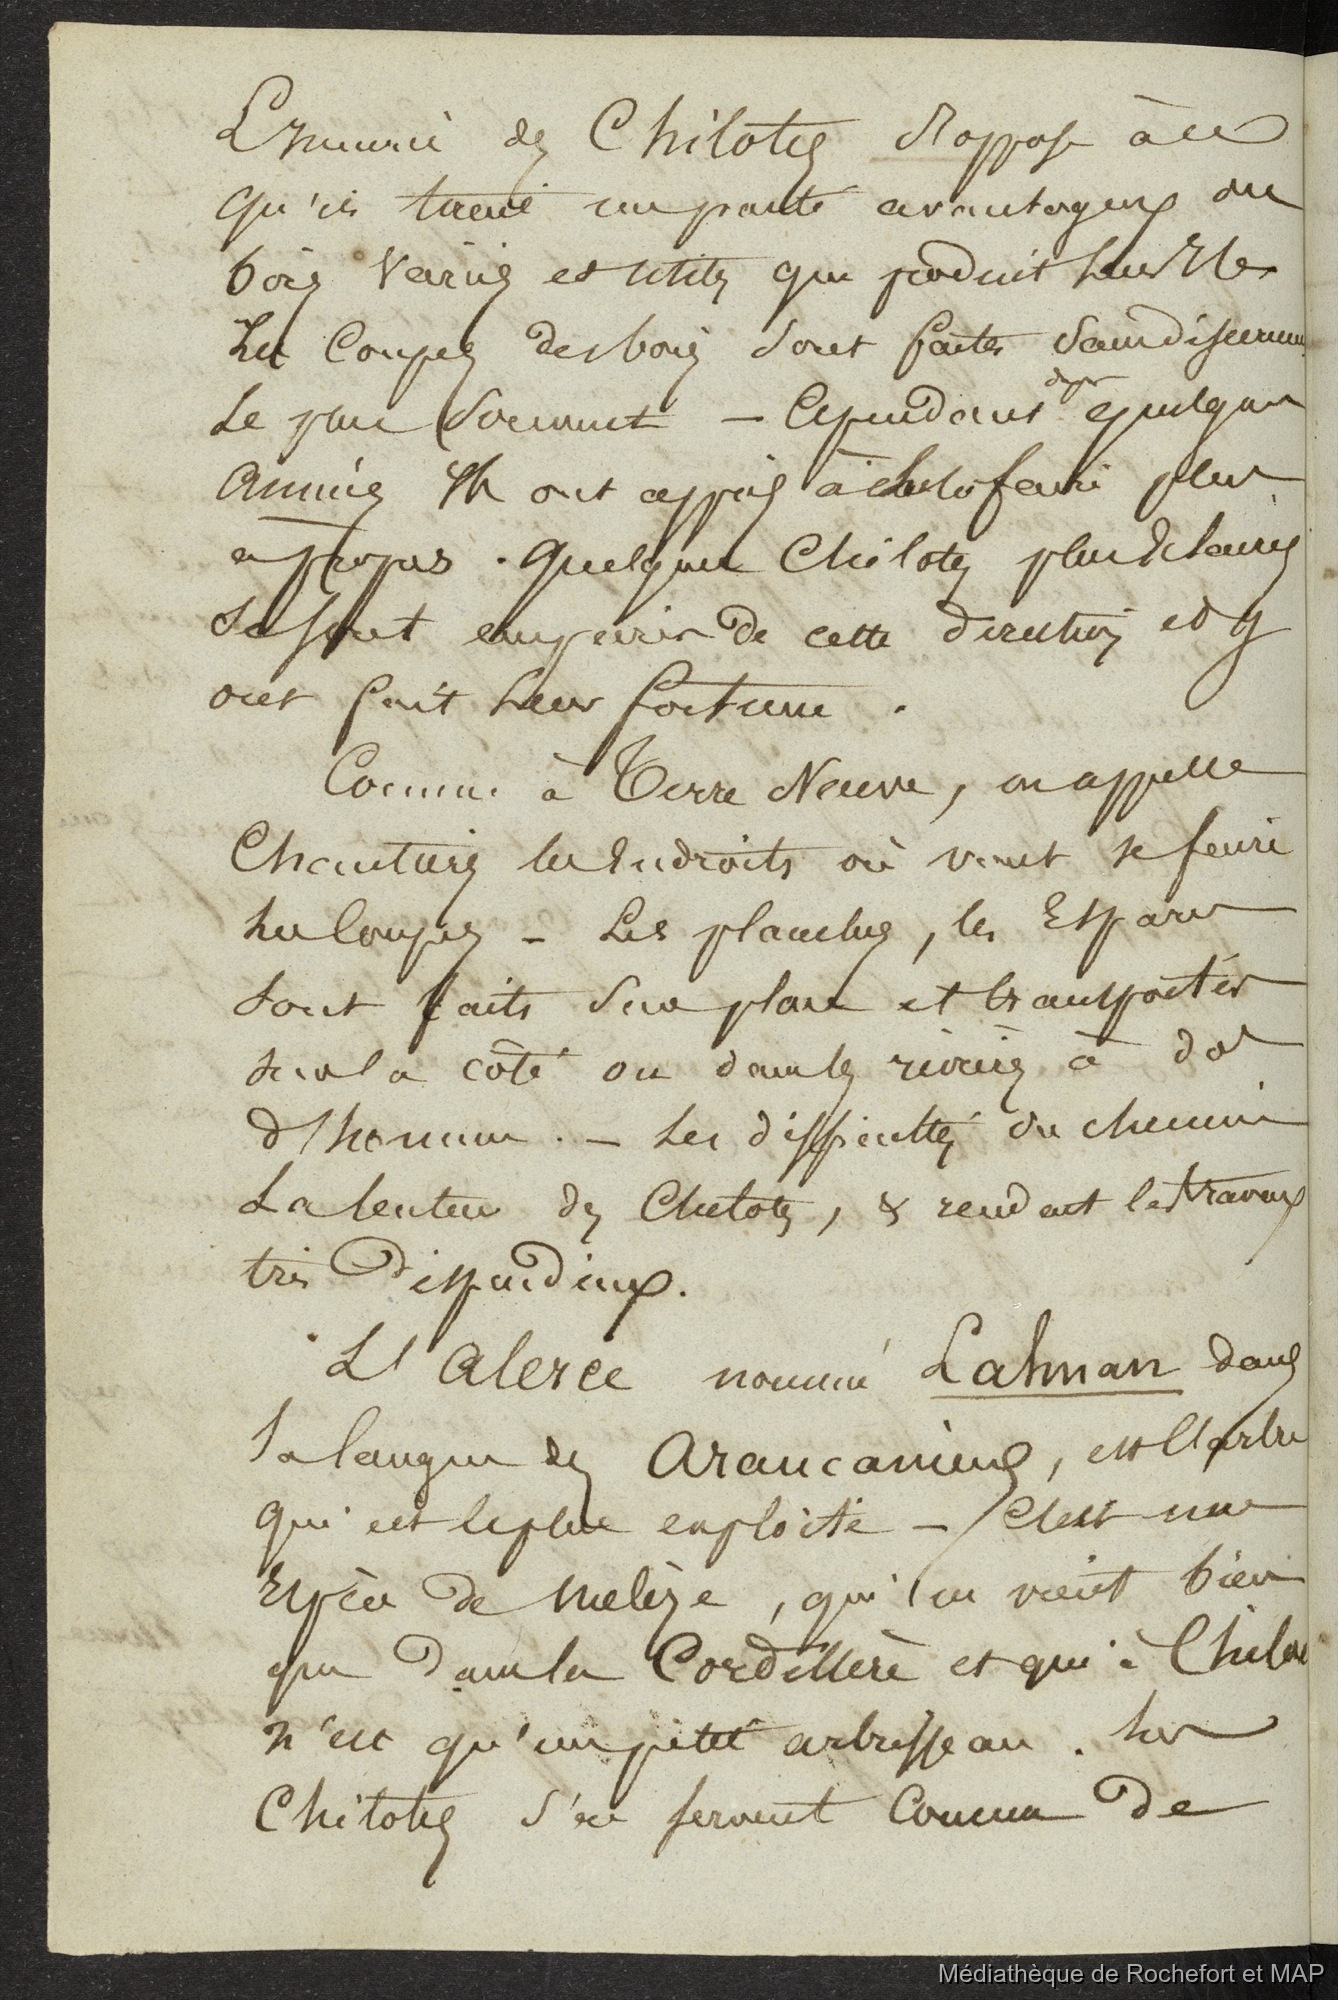 L'Incurie des Chilotes s'oppose à ce
qu'ils tirent un parti avantageux du
bois variés et utiles que produit leur Ile.
Les Coupes des bois sont faites sans discernement
le plus souvent – Cependant depuis quelques
années ils ont appris à les faire plus
a propos. Quelques Chilotes plus Eclairés
se sont emparés de cette direction et y
ont fait leur fortune.
Comme à Terre Neuve, on appelle
Chantiers les Endroits où vont se faire
les Coupes – Les planches, les Espars
sont faits sur place et transportés
sur la côte ou dans les rivières à dos
d'homme. – Les difficultés du chemin
La lenteur des Chilotes, & rendent les travaux
très dispendieux.
L'Alerce nommé Lahnan dans
la langue des Araucaniens, est l'arbre
qui est le plus exploité – C'est une
Espèce de Melèze, qui ne vient bien
que dans la Cordillère et qui à Chiloe
n'est qu'un petit arbrisseau. Les
Chilotes s'en servent Comme de
Médiathèque de Rochefort et MAP